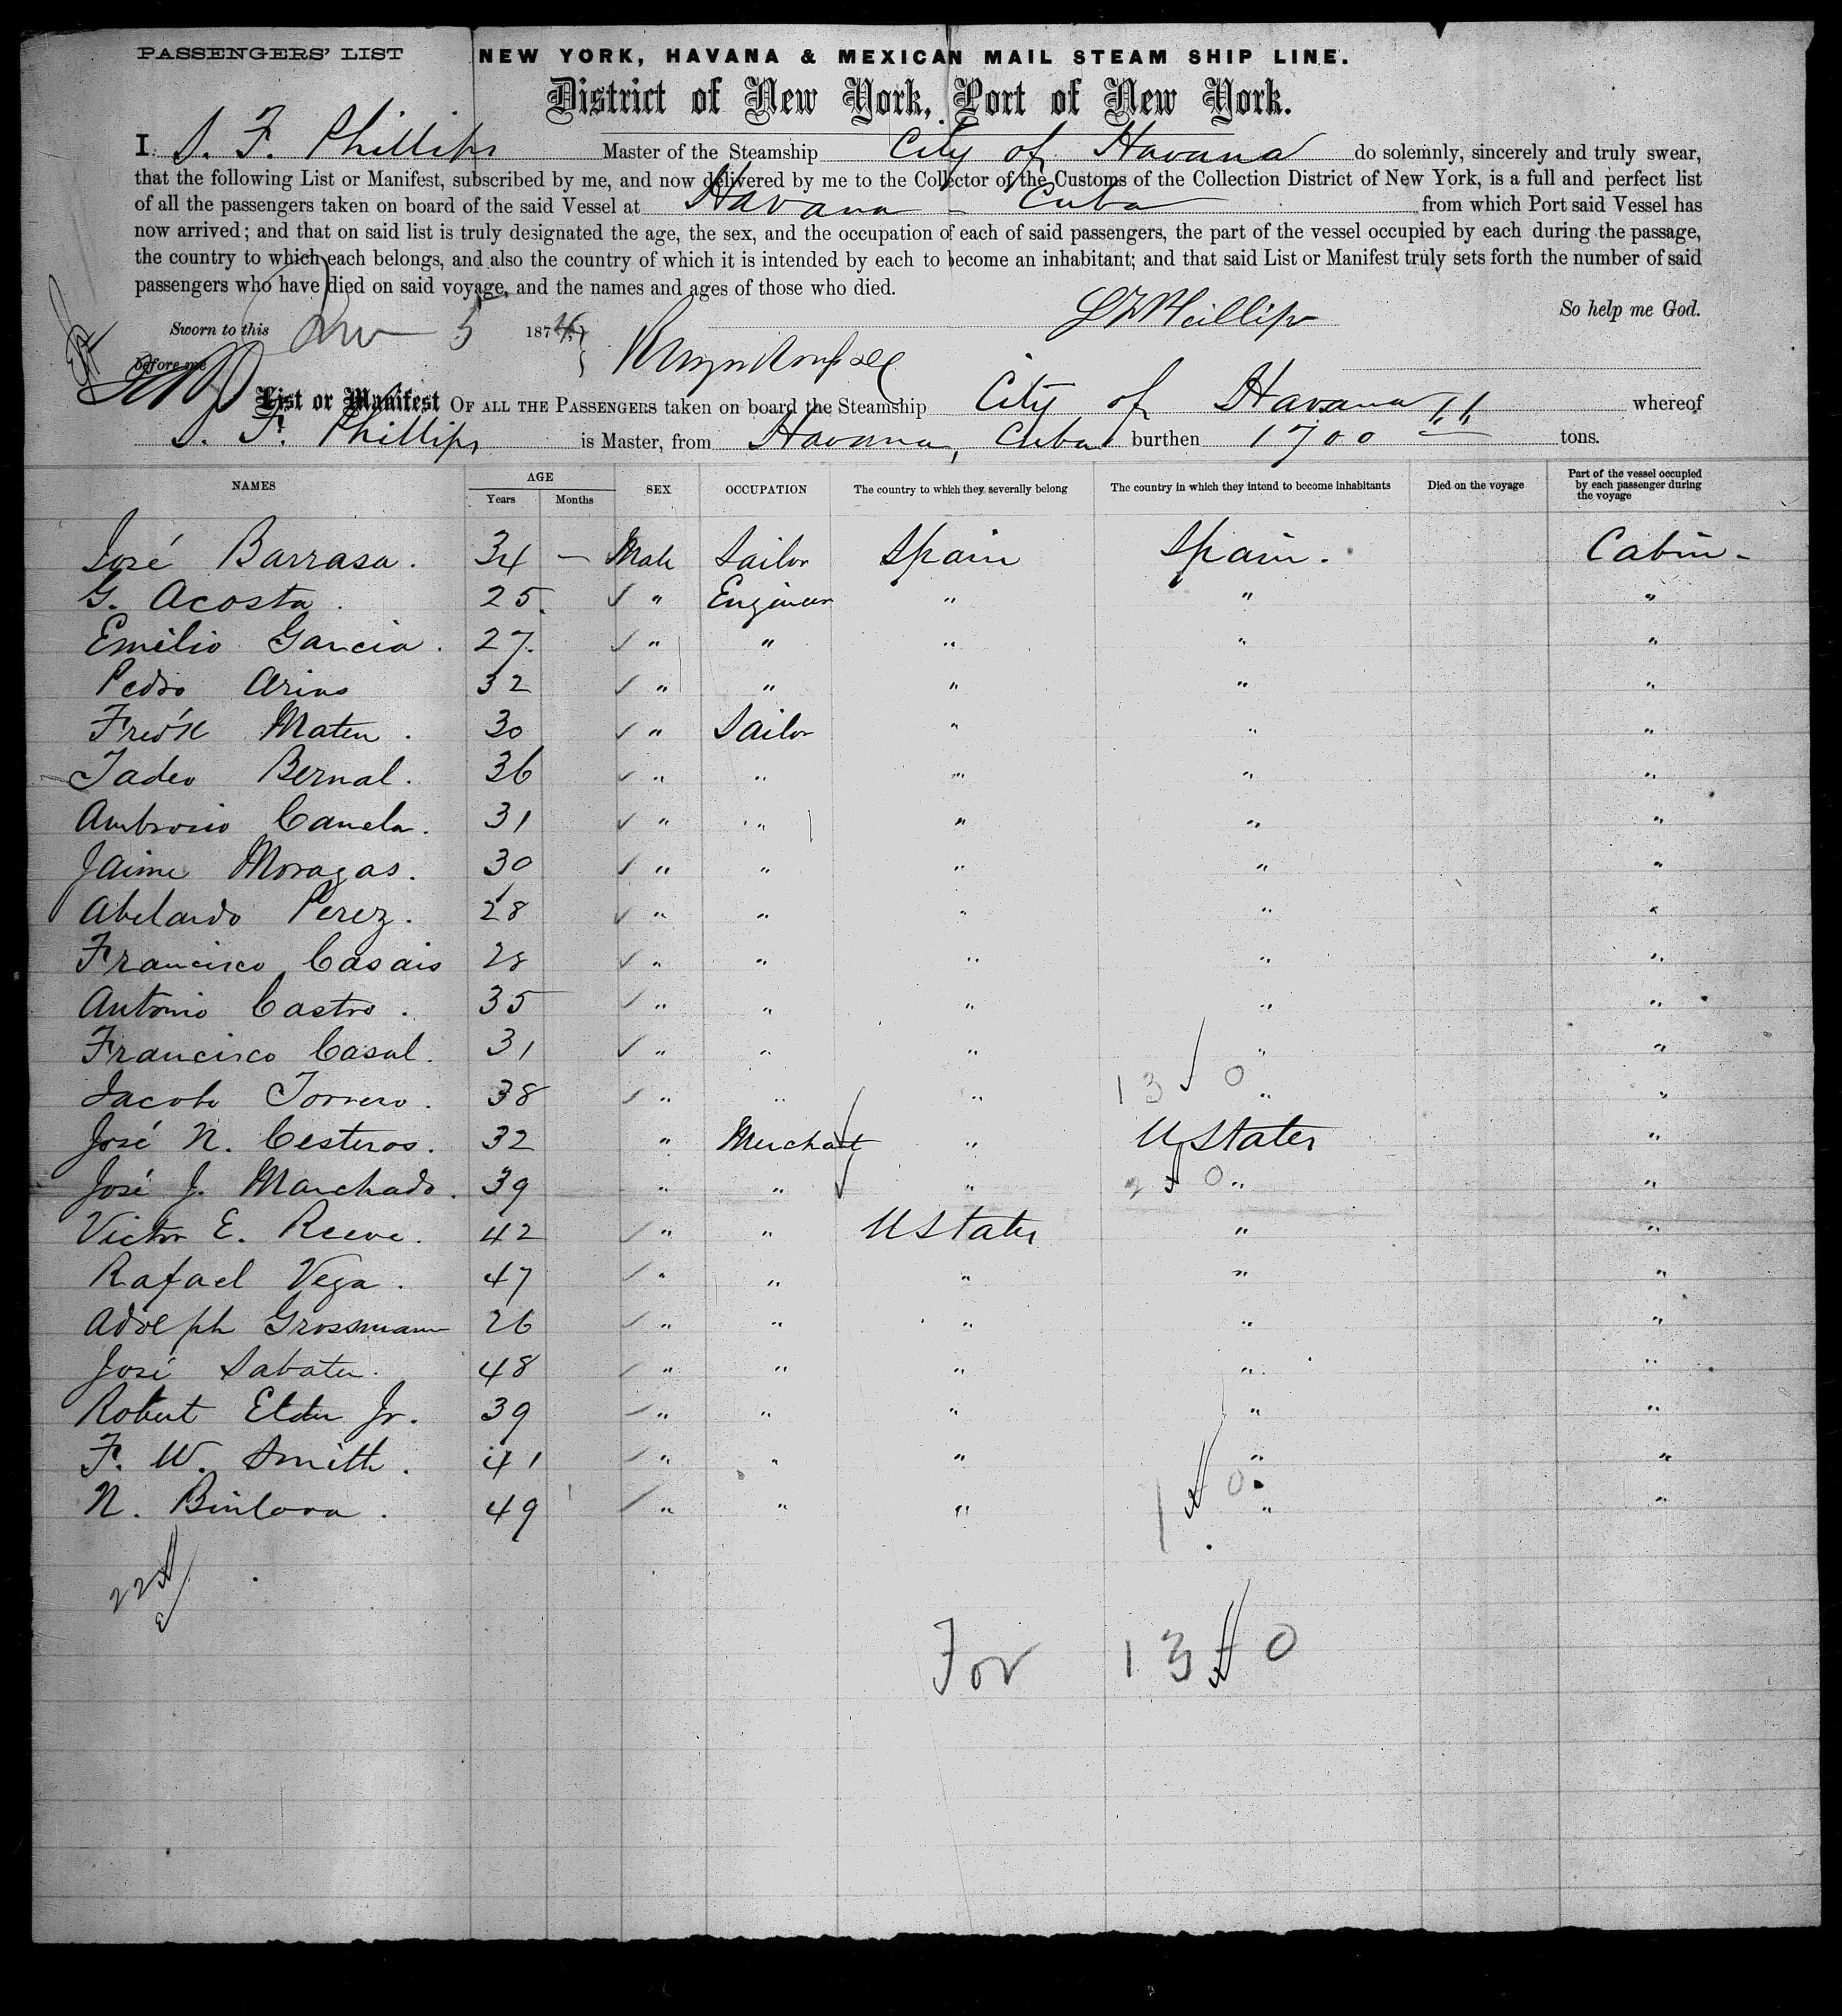 PASSENGERS' LIST NEW YORK, HAVANA & MEXICAN MAIL STEAM SHIP LINE.
District of New York, Port of New York.
I. S. F. Phillips Master of the Steamship City of Havana do solemnly, sincerely and truly swear,
that the following List or Manifest, subscribed by me, and now delivered by me to the Collector of the Customs of the Collection District of New York, is a full and perfect list
of all the passengers taken on board of the said Vessel at Havana - Cuba from which Port said Vessel has
now arrived; and that on said list is truly designated the age, the sex, and the occupation of each of said passengers, the part of the vessel occupied by each during the passage,
the country to which each belongs, and also the country of which it is intended by each to become an inhabitant; and that said List or Manifest truly sets forth the number of said
passengers who have died on said voyage, and the names and ages of those who died.
So help me God.
Sworn to this 5 187 S F Phillips
before me
List or Manifest OF ALL THE PASSENGERS taken on board the Steamship City of Havana whereof
S. F. Phillips is Master, from Havana, Cuba burthen 1700 tons.
NAMES AGE Years Months SEX OCCUPATION The country to which they severally belong The country in which they intend to become inhabitants Died on the voyage Part of the vessel occupied by each passenger during the voyage
José Barrasa. 34 — Male Sailor Spain Spain. Cabin -
G. Acosta. 25. ✓ " Engineer " " "
Emilio Garcia. 27. ✓ " " " " "
Pedro Arias 32 ✓ " " " " "
Fred'k Mateu. 30 ✓ " Sailor " " "
Tadeo Bernal. 36 ✓ " " " " "
Ambrosio Canela. 31 ✓ " " " " "
Jaime Moragas. 30 ✓ " " " " "
Abelardo Perez. 28 ✓ " " " " "
Francisco Casais 28 ✓ " " " " "
Antonio Castro. 35 ✓ " " " " "
Francisco Casal. 31 ✓ " " " " "
13 0
Jacobo Torrero. 38 ✓ " " " " "
José N. Cesteros. 32 " Merchant " U States "
José J. Marchado. 39 " " " 2 0 " "
Victor E. Reeve. 42 ✓ " " U States " "
Rafael Vega. 47 ✓ " " " " "
Adolph Grossmann 26 ✓ " " " " "
José Sabater. 48 ✓ " " " " "
Robert Elder Jr. 39 ✓ " " " " "
F. W. Smith. 41 ✓ " " " " "
N. Binlora. 49 ✓ " " " " "
22
For 13 0